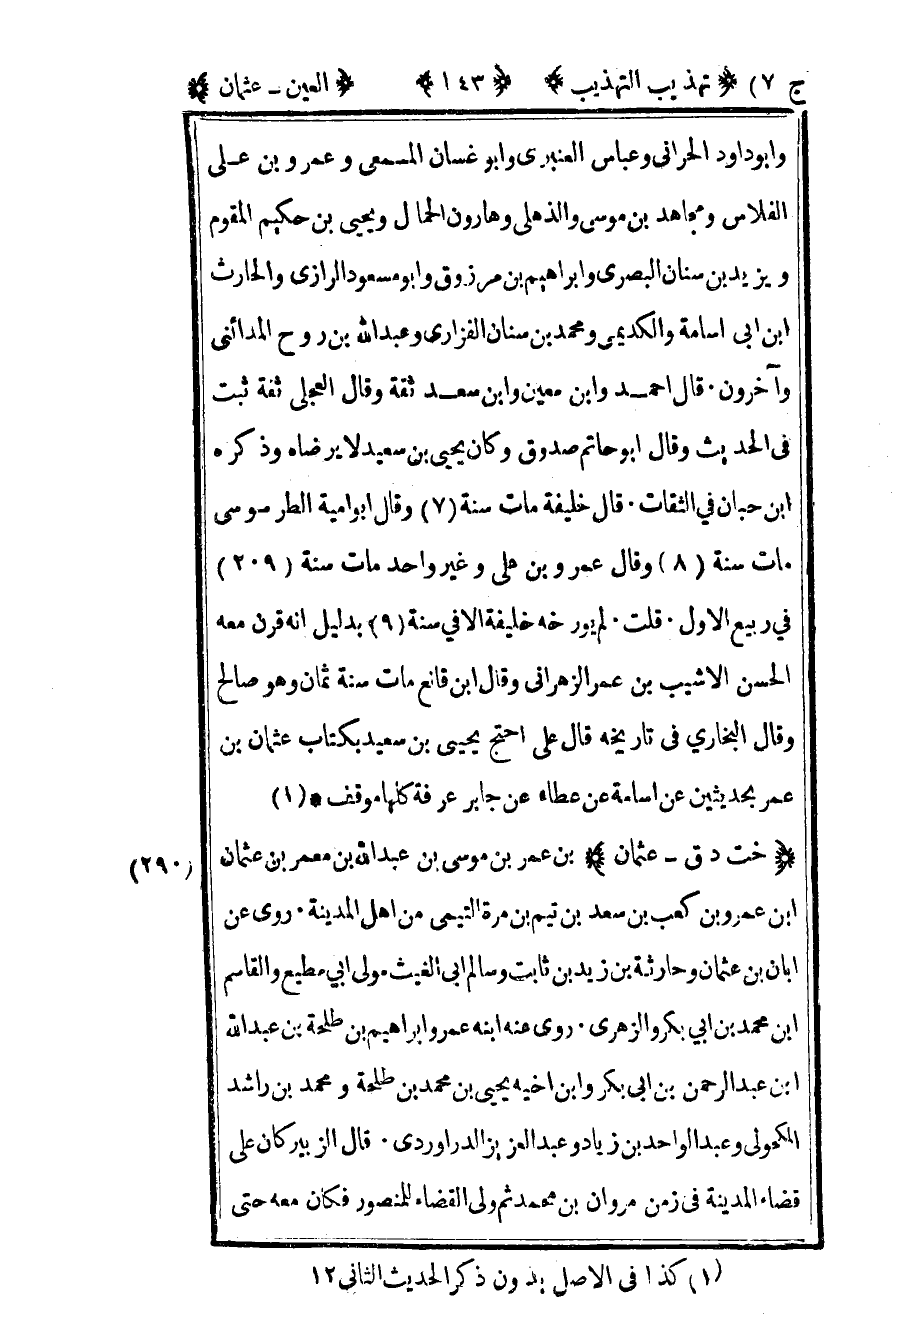 ج ٧) ﴿ تهذيب التهذيب ﴾ ﴿ ١٤٣ ﴾ ﴿ العين - عثمان ﴾
وابوداود الحرانى وعباس العنبرى وابو غسان المسمعى و عمرو بن على
الفلاس ومجاهد بن موسى والذهلى وهارون الحمال ويحيى بن حكيم المقوم
ويزيد بن سنان البصرى وابراهيم بن مرزوق وابو مسعود الرازى والحارث
ابن ابى اسامة والكديمى ومحمد بن سنان الفزارى وعبدالله بن روح المدائنى
وآخرون · قال احمد وابن معين وابن سعد ثقة وقال العجلى ثقة ثبت
فى الحديث وقال ابو حاتم صدوق وكان يحيى بن سعيد لا يرضاه وذكره
ابن حبان في الثقات · قال خليفة مات سنة (٧) وقال ابو امية الطرسوسى
مات سنة (٨) وقال عمرو بن على و غير واحد مات سنة (٢٠٩)
في ربيع الاول · قلت · لم يورخه خليفة الا في سنة (٩) بدليل انه قرن معه
الحسن الاشيب بن عمر الزهرانى وقال ابن قانع مات سنة ثمان وهو صالح
وقال البخاري فى تاريخه قال على احتج يحيى بن سعيد بكتاب عثمان بن
عمر بحديثين عن اسامة عن عطاء عن جابر عرفة كلها موقف * (١)
﴿ خت د ق - عثمان ﴾ بن عمر بن موسى بن عبدالله بن معمر بن عثمان (٢٩٠)
ابن عمرو بن كعب بن سعد بن تيم بن مرة التيمى من اهل المدينة · روى عن
ابان بن عثمان وحارثة بن زيد بن ثابت وسالم ابى الغيث مولى ابي مطيع والقاسم
ابن محمد بن ابي بكر والزهرى · روى عنه ابنه عمر وابراهيم بن طلحة بن عبدالله
ابن عبدالرحمن بن ابى بكر وابن اخيه يحيى بن محمد بن طلحة و محمد بن راشد
المكحولى وعبدالواحد بن زياد وعبدالعزيز الدراوردى · قال الزبير كان على
قضاء المدينة فى زمن مروان بن محمد ثم ولى القضاء للمنصور فكان معه حتى
(١) كذا فى الاصل بدون ذكر الحديث الثانى ١٢